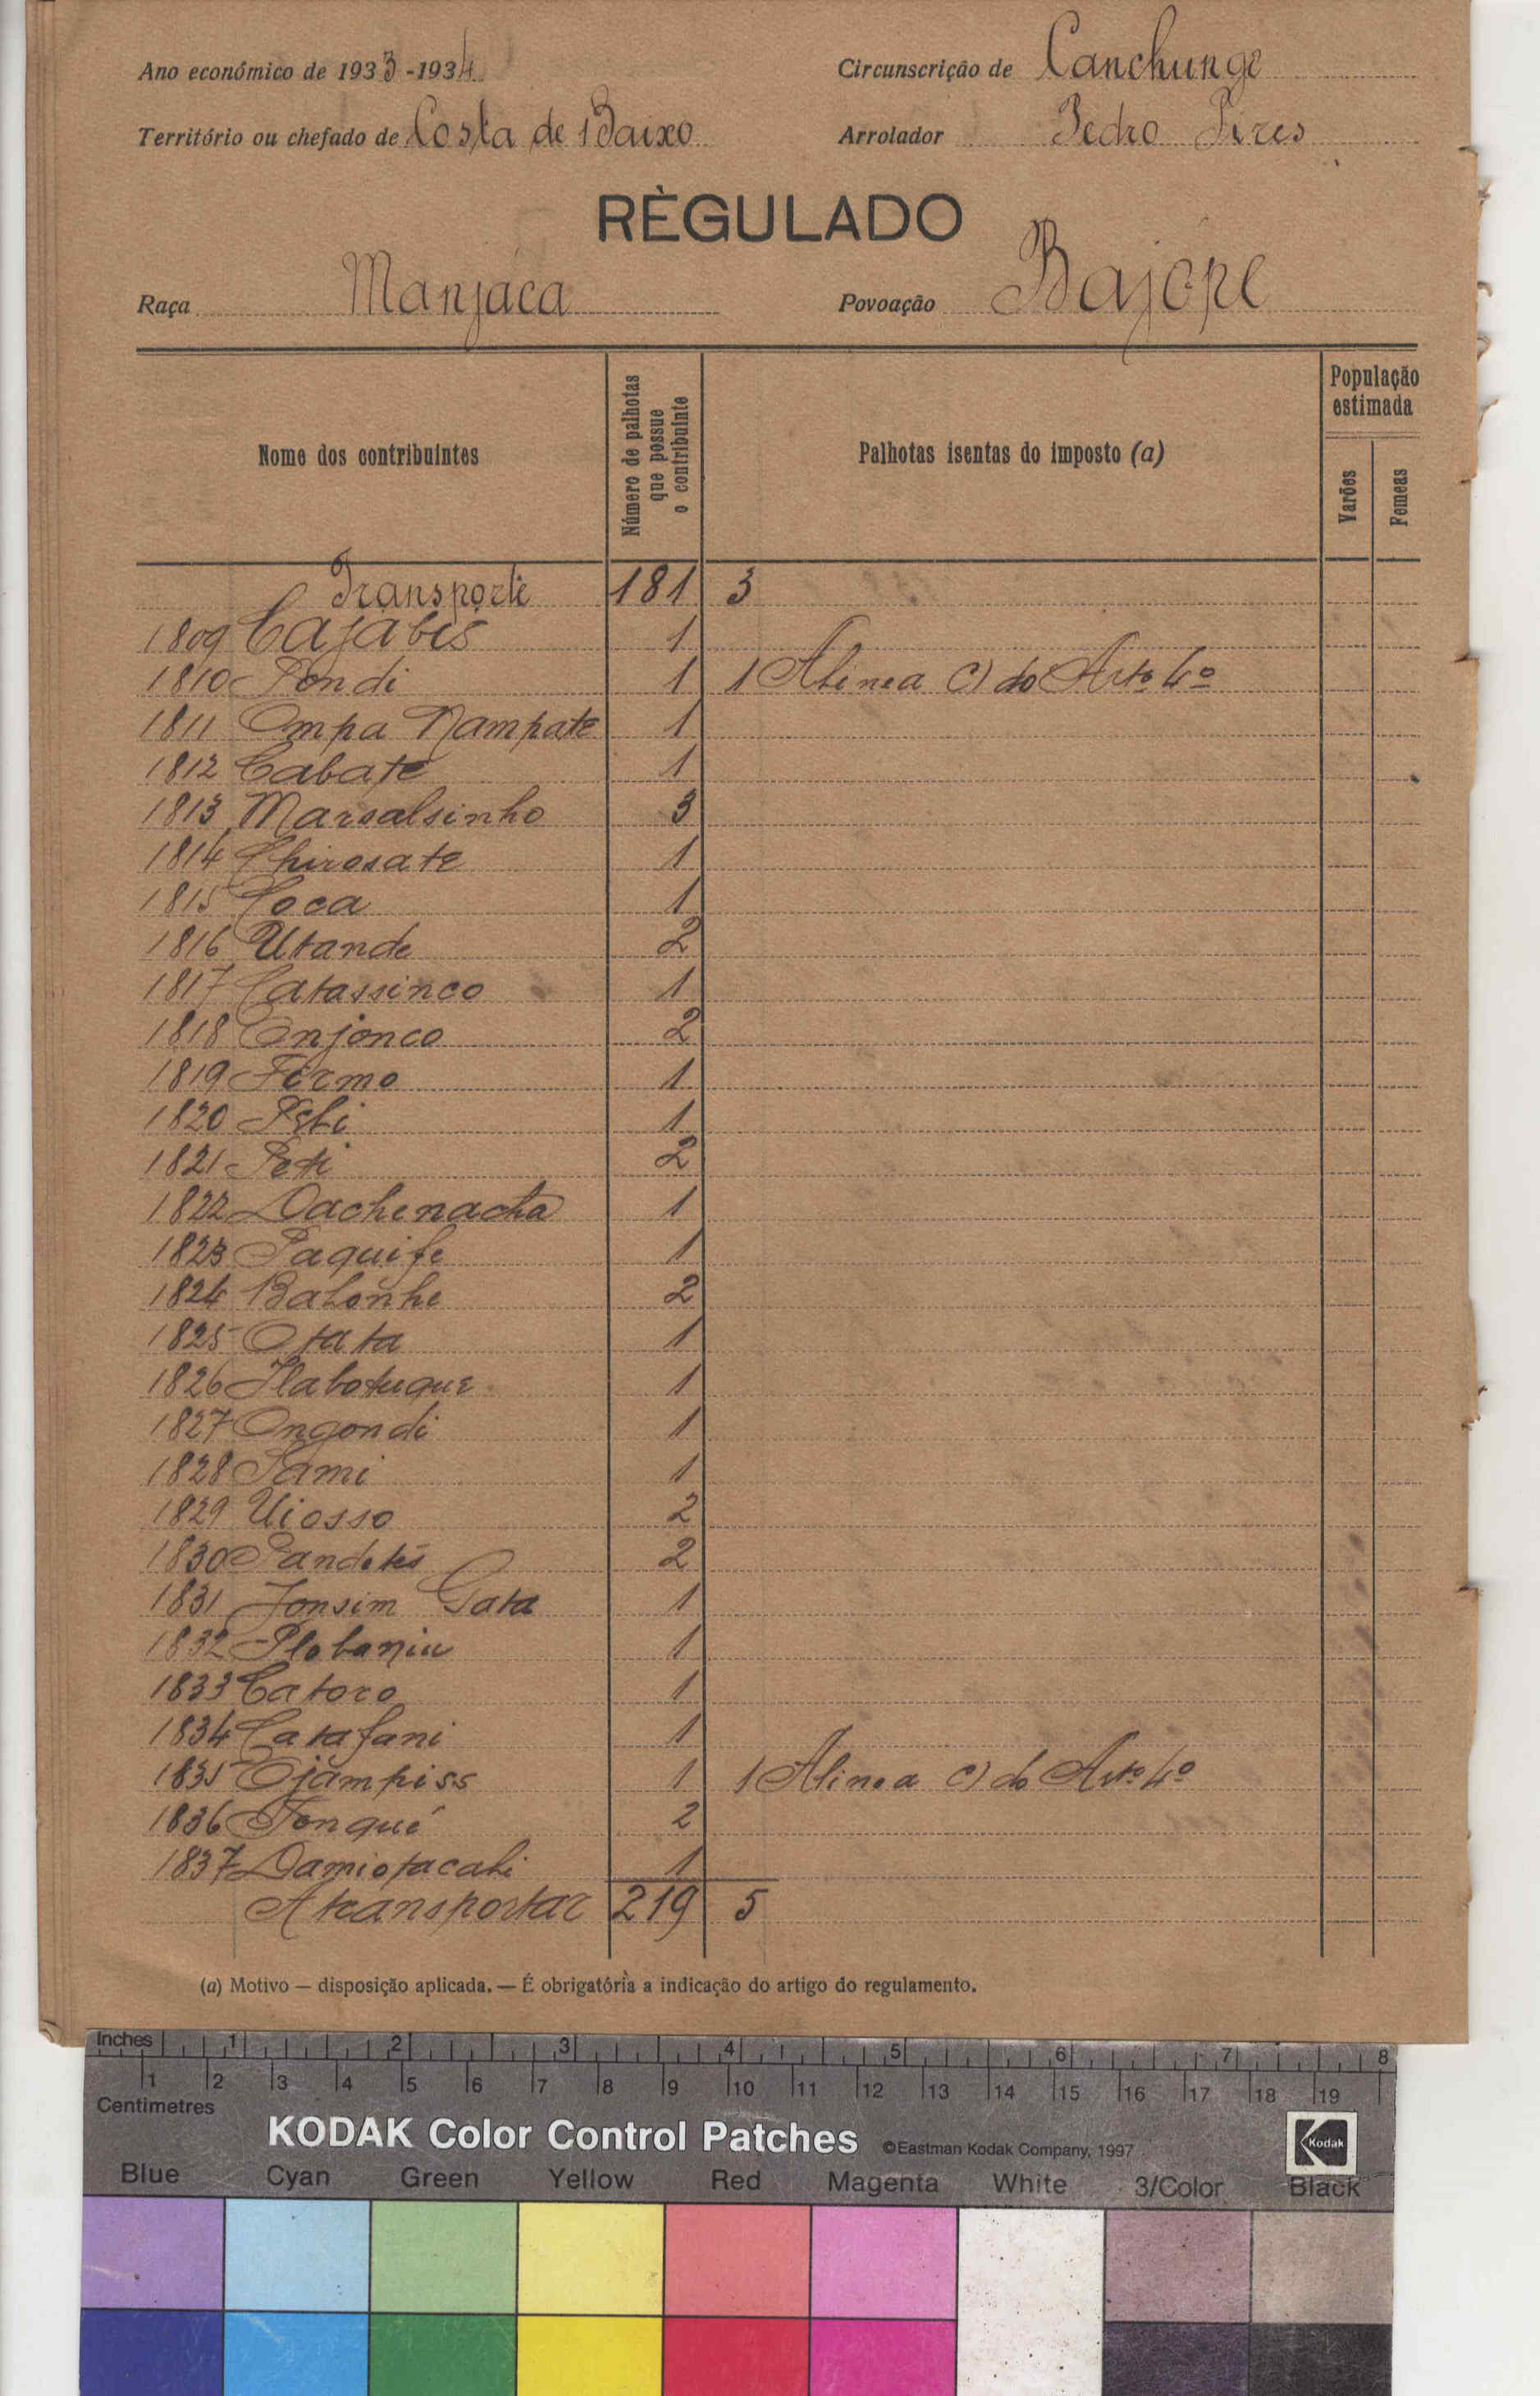 Ano económico de 1933-1934
Circunscrição de Canchungo
Território ou chefado de Costa de Baixo
Arrolador Pedro Pires
RÈGULADO
Raça Manjaca
Povoação Bajope
Nome dos contribuintes
Número de palhotas que possue o contribuinte
Palhotas isentas do imposto (a)
População estimada
Varões
Femeas
Transporte 181 3
1809 Cajabis 1
1810 Pondi 1 1 Alinea C) do Artº 4º
1811 Ompa Nampate 1
1812 Cabate 1
1813 Marsalsinho 3
1814 Chirosate 1
1815 Coca 1
1816 Utande 2
1817 Catassinco 1
1818 Onjonco 2
1819 Firmo 1
1820 1
1821 Peti 2
1822 Dachenacha 1
1823 Paquife 1
1824 Balonhe 2
1825 Otata 1
1826 1
1827 Ongondi 1
1828 Sami 1
1829 Uiosso 2
1830 2
1831 Jonsim Gata 1
1832 1
1833 Catoro 1
1834 Catafani 1
1835 Ojampiss 1 1 Alinea C) do Artº 4º
1836 Tonqué 2
1837 1
A transportar 219 5
(a) Motivo — disposição aplicada. — É obrigatória a indicação do artigo do regulamento.
Inches 1 2 3 4 5 6 7 8
1 2 3 4 5 6 7 8 9 10 11 12 13 14 15 16 17 18 19
Centimetres
KODAK Color Control Patches ©Eastman Kodak Company, 1997 Kodak
Blue Cyan Green Yellow Red Magenta White 3/Color Black